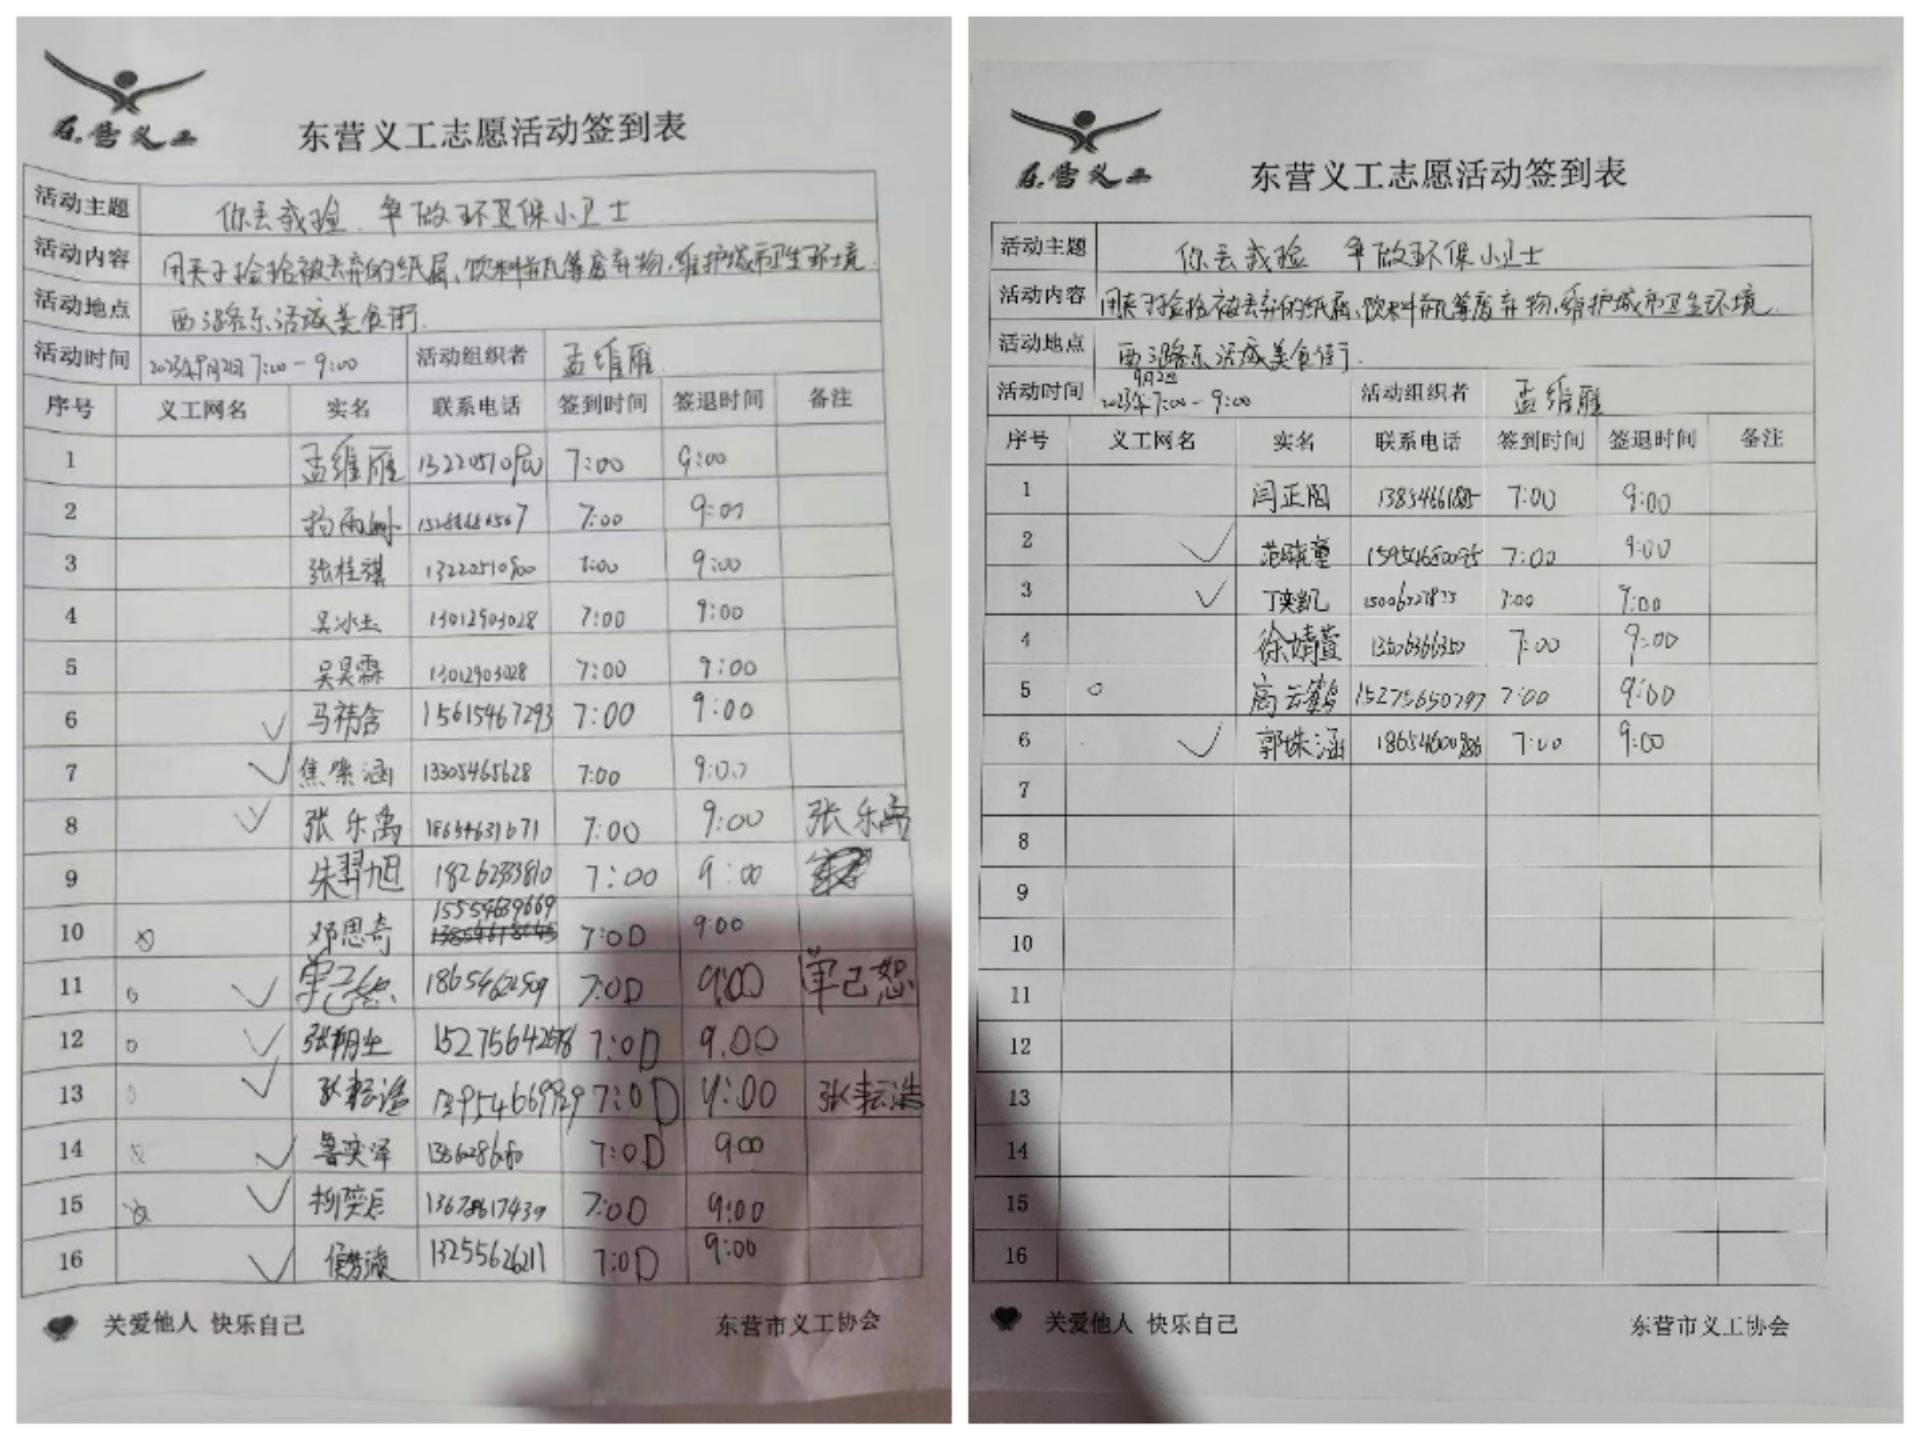 东营义工
东营义工志愿活动签到表
活动主题 你丢我捡 争做环卫保小卫士
活动内容 用夹子捡拾被丢弃的纸屑、饮料瓶等废弃物,维护城市卫生环境.
活动地点 西三路东活城美食街.
活动时间 2023年9月2日 7:00-9:00 活动组织者 孟维雁
序号 义工网名 实名 联系电话 签到时间 签退时间 备注
1 孟维雁 7:00 9:00
2 7:00 9:00
3 张桂祺 13220510900 7:00 9:00
4 吴冰玉 13012903028 7:00 9:00
5 吴昊霖 13012903028 7:00 9:00
6 ✓ 15615467293 7:00 9:00
7 ✓ 13305465628 7:00 9:00
8 ✓ 张乐禹 18654631671 7:00 9:00 张乐禹
9 朱羿旭 7:00 9:00
10 邓思奇 15554639669 7:00 9:00
11 ✓ 单己恕 18654622509 7:00 9:00 单己恕
12 ✓ 7:00 9.00
13 ✓ 张耘浩 7:00 9:00 张耘浩
14 ✓ 鲁奕泽 7:00 900
15 ✓ 7:00 9:00
16 ✓ 13255626211 7:00 9:00
关爱他人 快乐自己 东营市义工协会
东营义工
东营义工志愿活动签到表
活动主题 你丢我捡 争做环保小卫士
活动内容 用夹子捡拾被丢弃的纸屑、饮料瓶等废弃物,维护城市卫生环境.
活动地点 西三路东活城美食街.
活动时间 2023年9月2日 7:00-9:00 活动组织者 孟维雁
序号 义工网名 实名 联系电话 签到时间 签退时间 备注
1 闫正阁 7:00 9:00
2 ✓ 15954680095 7:00 9:00
3 ✓ 丁奕凯 7:00 9:00
4 徐婧萱 7:00 9:00
5 高云鹤 15275650797 7:00 9:00
6 ✓ 郭姝涵 7:00 9:00
7
8
9
10
11
12
13
14
15
16
关爱他人 快乐自己 东营市义工协会